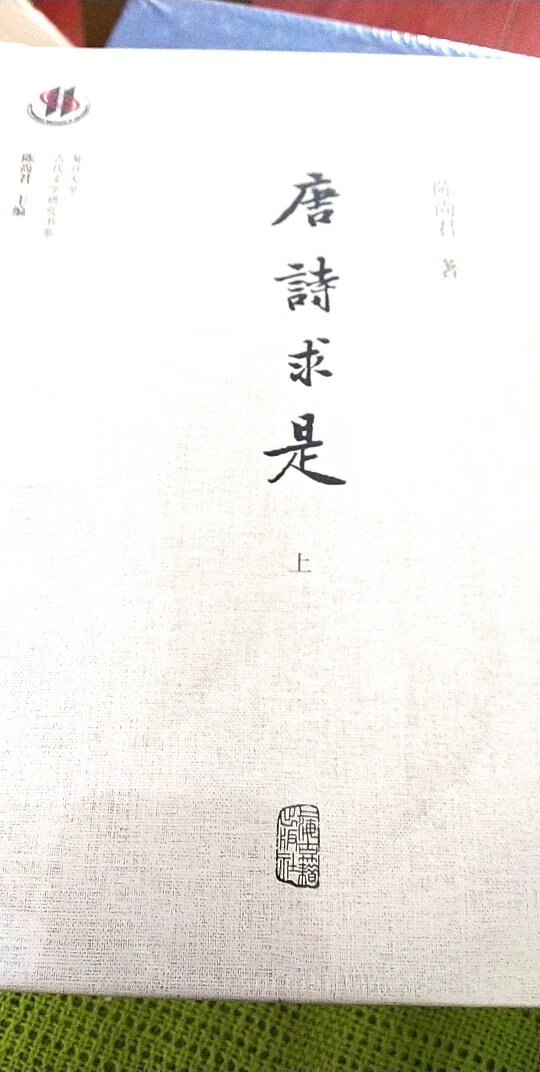 陳尚君 著
唐詩求是
上
復旦大學
古代文學研究書系
陳尚君 主編
上海古籍出版社